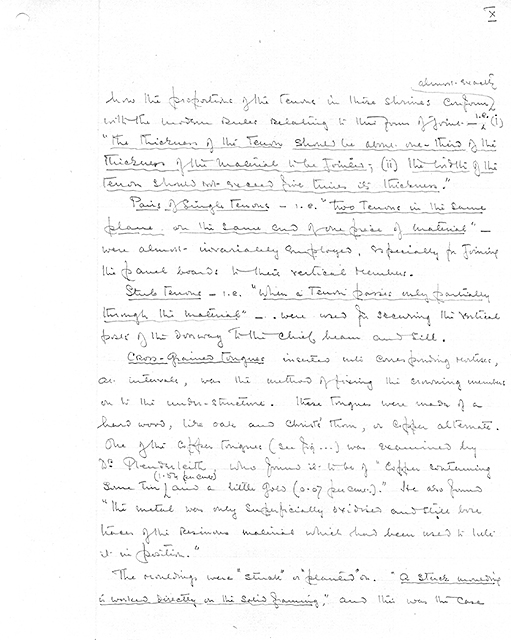 X
almost exactly
how the proportions of the tenons in these shrines conform
with the modern rules relating to this form of joint – i.e. (i)
"the thickness of the tenon should be about one-third of the
thickness of the material to be joined; (ii) the width of the
tenon should not exceed five times its thickness."
Pairs of Single tenons – i.e. "two tenons in the same
plane, on the same end of one piece of material" –
were almost invariably employed, especially for joining
the panel boards to their vertical members.
Stub tenons – i.e. "When a tenon passes only partially
through the material" – were used for securing the vertical
posts of the doorway to the chief beam and sill.
Cross-grained tongues inserted into corresponding mortises,
at intervals, was the method of fixing the crowning members
on to the under-structure. These tongues were made of a
hard wood, like oak and Christ's thorn, or copper alternate.
One of the copper tongues (see fig ...) was examined by
Dr Plenderleith, who found it to be of "copper containing
(1.54 per cent)
some tin and a little gold (0.07 per cent)." He also found
"the metal was only superficially oxidised and still bore
traces of the resinous material which had been used to hold
it in position."
The mouldings were "struck" or "planted" on. "A struck moulding
is worked directly on the solid framing," and this was the case